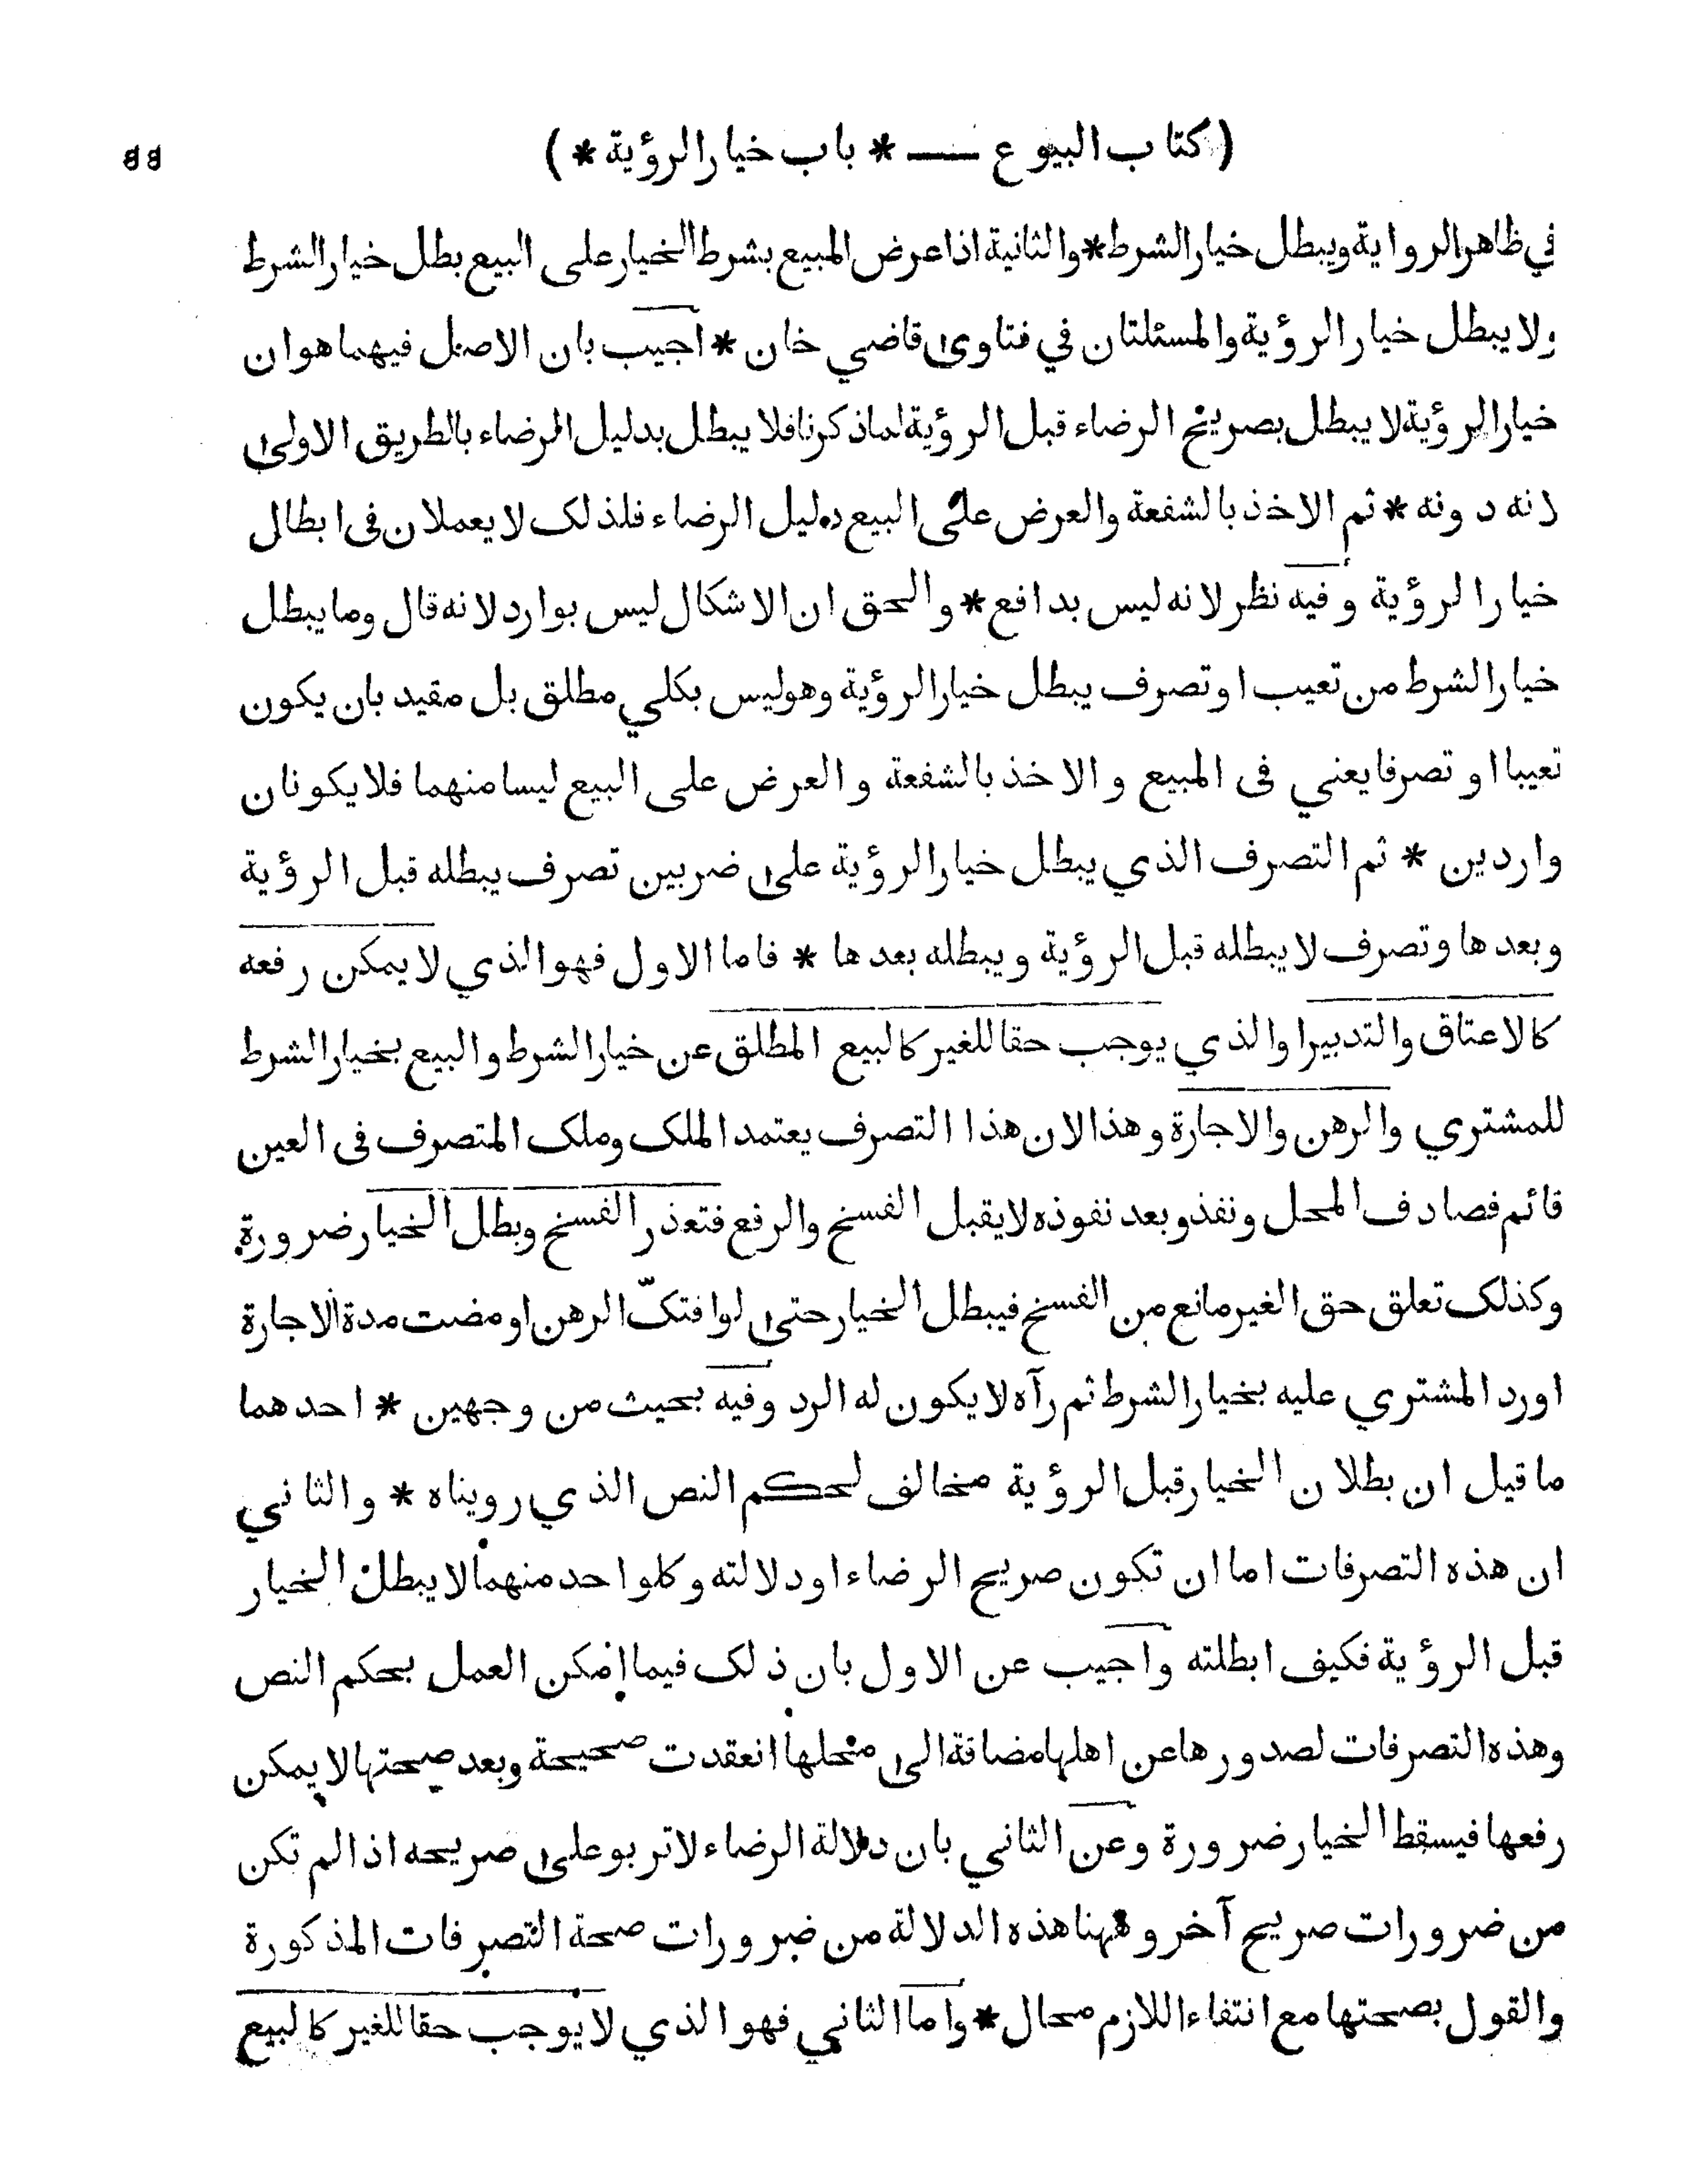 ( كتاب البيوع — * باب خيار الرؤية * )
في ظاهر الرواية ويبطل خيار الشرط * والثانية اذا عرض المبيع بشرط الخيار على البيع بطل خيار الشرط
ولا يبطل خيار الرؤية والمسئلتان في فتاوى قاضي خان * اجيب بان الاصل فيهما هو ان
خيار الرؤية لا يبطل بصريح الرضاء قبل الرؤية لما ذكرنا فلا يبطل بدليل الرضاء بالطريق الاولى
لانه دونه * ثم الاخذ بالشفعة والعرض على البيع دليل الرضاء فلذلك لا يعملان في ابطال
خيار الرؤية وفيه نظر لانه ليس بدافع * والحق ان الاشكال ليس بوارد لانه قال وما يبطل
خيار الشرط من تعيب او تصرف يبطل خيار الرؤية وهو ليس بكلي مطلق بل مقيد بان يكون
تعيبا او تصرفا يعني في المبيع والاخذ بالشفعة والعرض على البيع ليسا منهما فلا يكونان
واردين * ثم التصرف الذي يبطل خيار الرؤية على ضربين تصرف يبطله قبل الرؤية
وبعدها وتصرف لا يبطله قبل الرؤية ويبطله بعدها * فاما الاول فهو الذي لا يمكن رفعه
كالاعتاق والتدبير او الذي يوجب حقا للغير كالبيع المطلق عن خيار الشرط والبيع بخيار الشرط
للمشتري والرهن والاجارة وهذا لان هذا التصرف يعتمد الملك وملك المتصرف في العين
قائم فصادف المحل ونفذ وبعد نفوذه لا يقبل الفسخ والرفع فتعذر الفسخ وبطل الخيار ضرورة
وكذلك تعلق حق الغير مانع من الفسخ فيبطل الخيار حتى لو افتكّ الرهن او مضت مدة الاجارة
اورد المشتري عليه بخيار الشرط ثم رآه لا يكون له الرد وفيه بحيث من وجهين * احدهما
ما قيل ان بطلان الخيار قبل الرؤية مخالف لحكم النص الذي رويناه * والثاني
ان هذه التصرفات اما ان تكون صريح الرضاء او دلالته وكل واحد منهما لا يبطل الخيار
قبل الرؤية فكيف ابطلته واجيب عن الاول بان ذلك فيما امكن العمل بحكم النص
وهذه التصرفات لصدورها عن اهلها مضافة الى محلها انعقدت صحيحة وبعد صحتها لا يمكن
رفعها فيسقط الخيار ضرورة وعن الثاني بان دلالة الرضاء لا تربو على صريحه اذا لم تكن
من ضرورات صريح آخر وههنا هذه الدلالة من ضرورات صحة التصرفات المذكورة
والقول بصحتها مع انتفاء اللازم محال * واما الثاني فهو الذي لا يوجب حقا للغير كالبيع